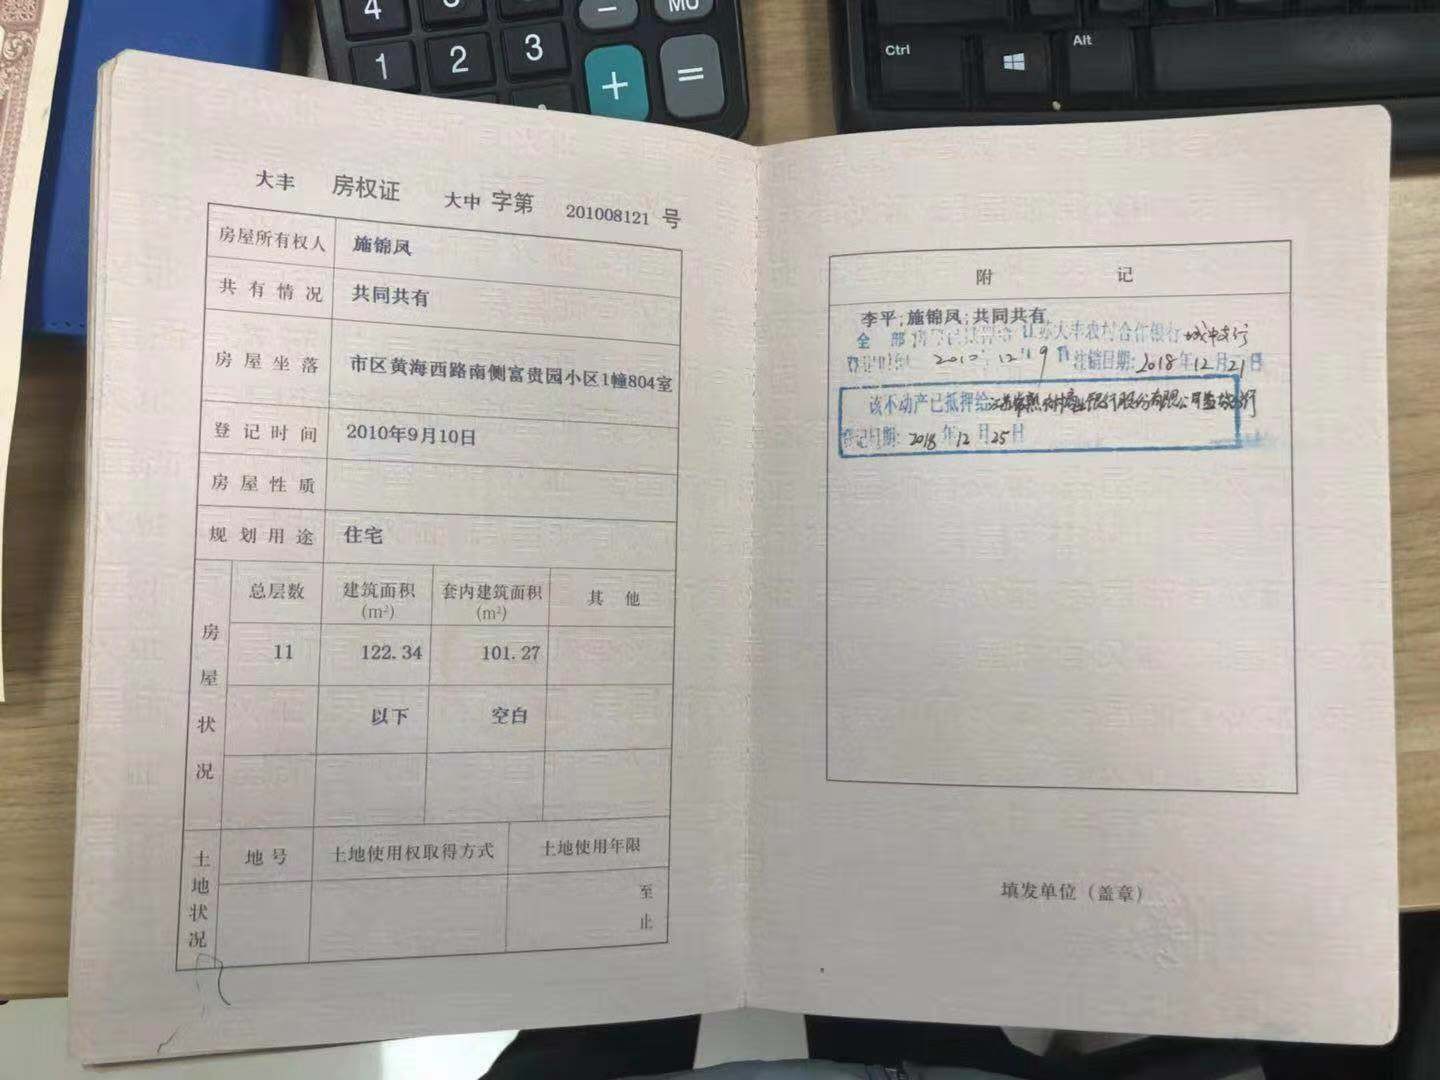 4
MU
1
2
3
+
=
Ctrl
Alt
大丰 房权证 大中 字第 201008121 号
房屋所有权人 施锦凤
共有情况 共同共有
房屋坐落 市区黄海西路南侧富贵园小区1幢804室
登记时间 2010年9月10日
房屋性质
规划用途 住宅
房屋状况
总层数 建筑面积(m²) 套内建筑面积(m²) 其他
11 122.34 101.27
以下 空白
土地状况
地号 土地使用权取得方式 土地使用年限
至
止
附 记
李平;施锦凤;共同共有
全部 江苏大丰农村合作银行城中支行
2010.12.19 注销日期:2018年12月21日
该不动产已抵押给江苏常熟农村商业银行股份有限公司盐城分行
登记日期:2018年12月25日
填发单位(盖章)